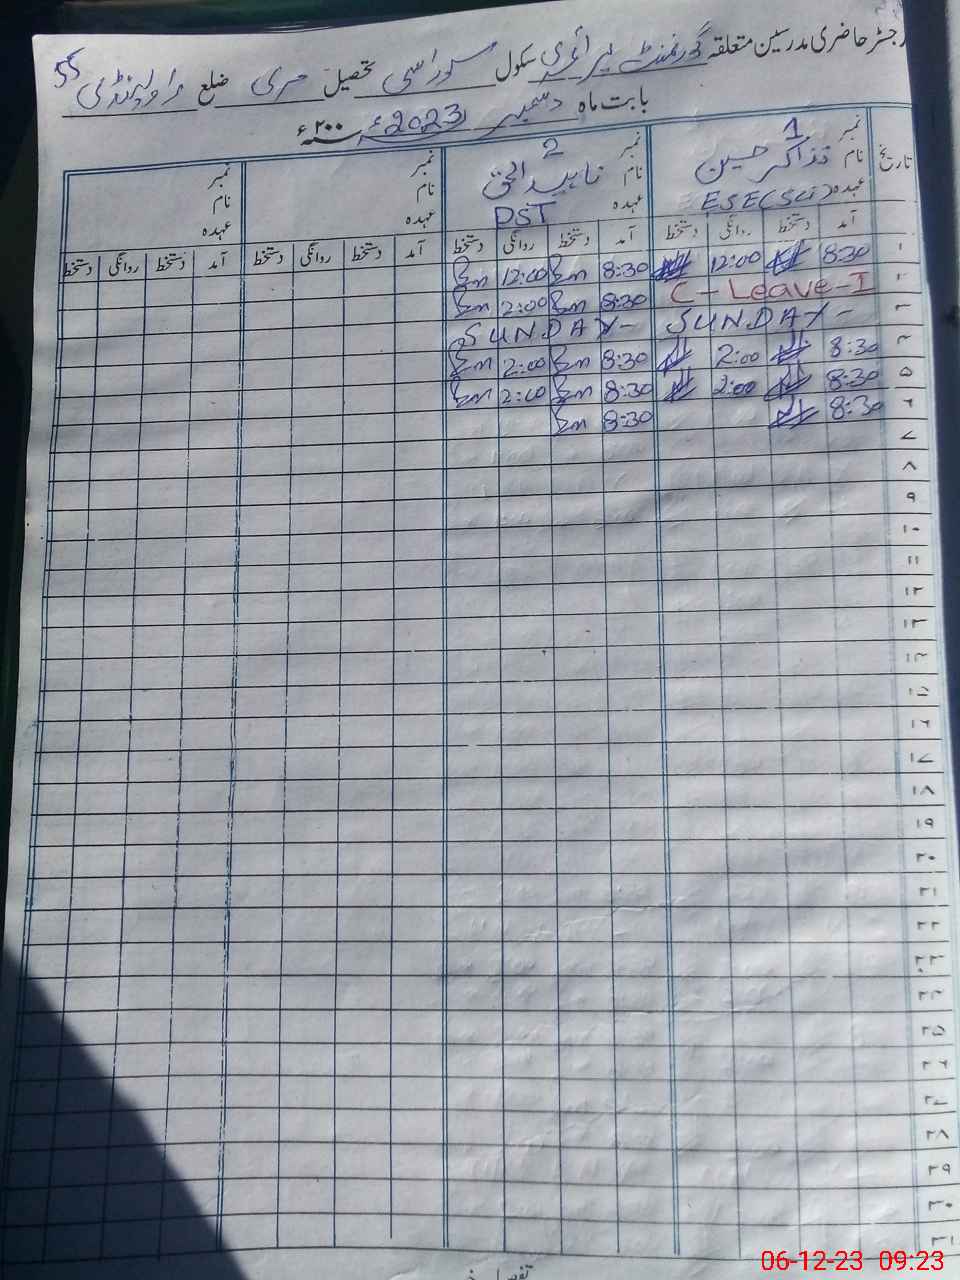 55
رجسٹر حاضری مدرسین متعلقہ گورنمنٹ پرائمری سکول سوراسی تحصیل مری ضلع راولپنڈی
بابت ماہ دسمبر 2023ء سنہ ۲۰۰ء
تاریخ نمبر 1 نمبر 2 نمبر نمبر
نام ذاکر حسین نام ناہید الحق نام نام
عہدہ ESE(Sci) عہدہ DST عہدہ عہدہ
آمد دستخط روانگی دستخط آمد دستخط روانگی دستخط آمد دستخط روانگی دستخط آمد دستخط روانگی دستخط
۱ 8:30 12:00 8:30 12:00
۲ C-Leave-I 8:30 2:00
۳ SUNDAY- SUNDAY-
۴ 8:30 2:00 8:30 2:00
۵ 8:30 2:00 8:30 2:00
۶ 8:30 8:30
۷
۸
۹
۱۰
۱۱
۱۲
۱۳
۱۴
۱۵
۱۶
۱۷
۱۸
۱۹
۲۰
۲۱
۲۲
۲۳
۲۴
۲۵
۲۶
۲۷
۲۸
۲۹
۳۰
۳۱
06-12-23 09:23